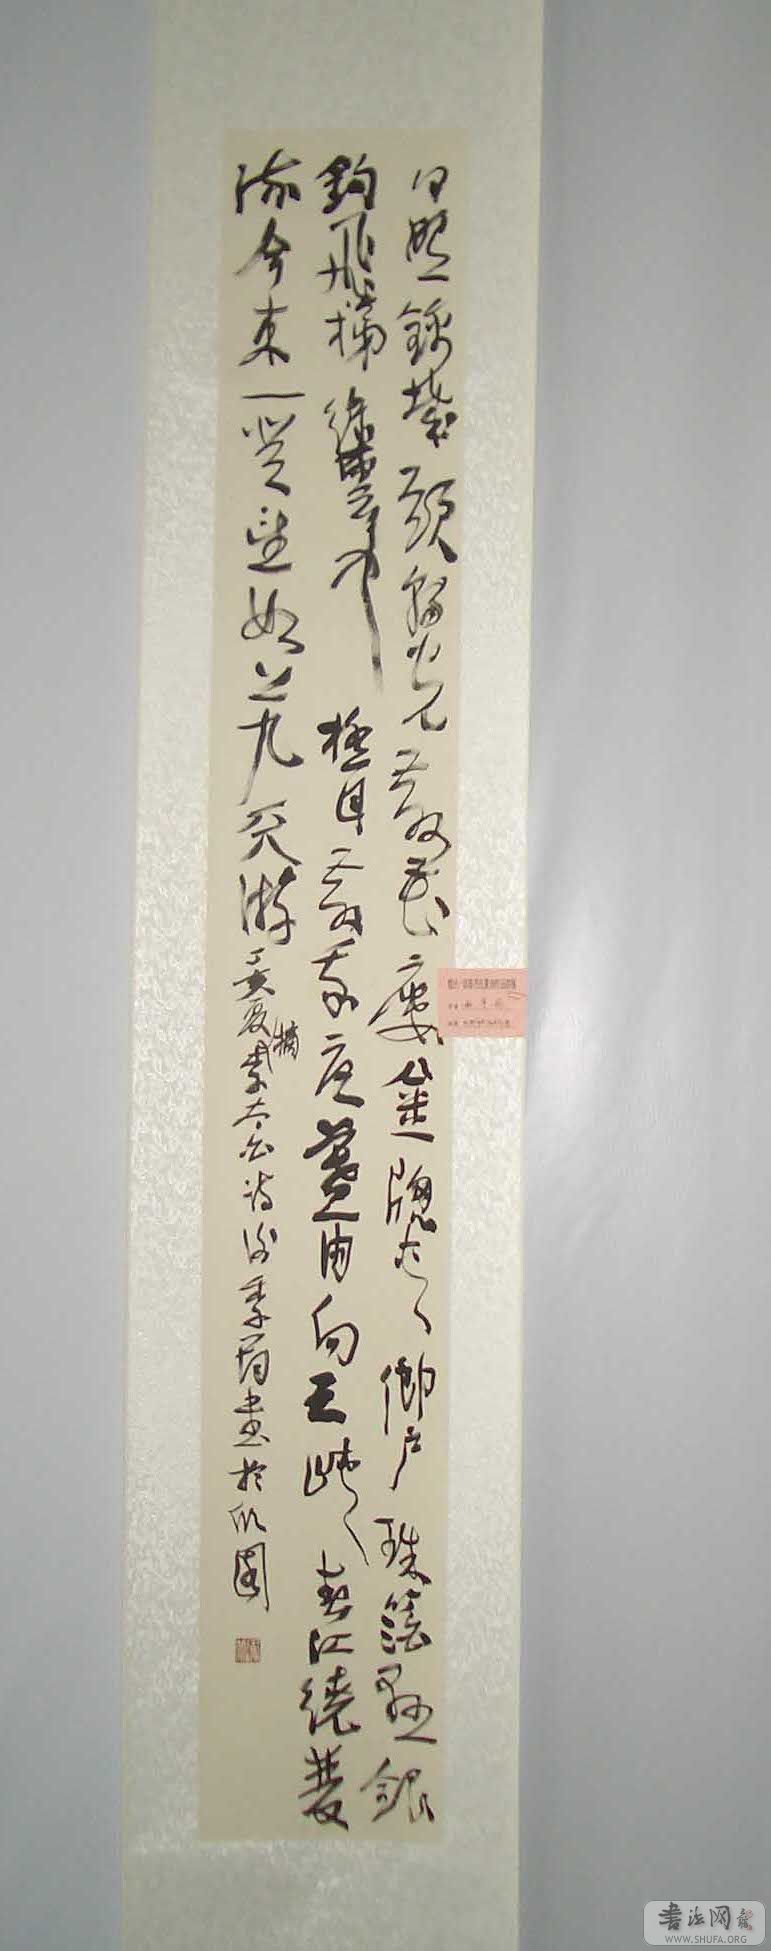 日照錦城頭朝光散花樓金窗夾繡戶珠箔懸銀
鈎飛梯綠雲中極目散我憂暮雨向三峽春江繞雙
流今來一登望如上九天游丁亥夏摘李太白詩書於園
書法网
WWW.SHUFA.ORG